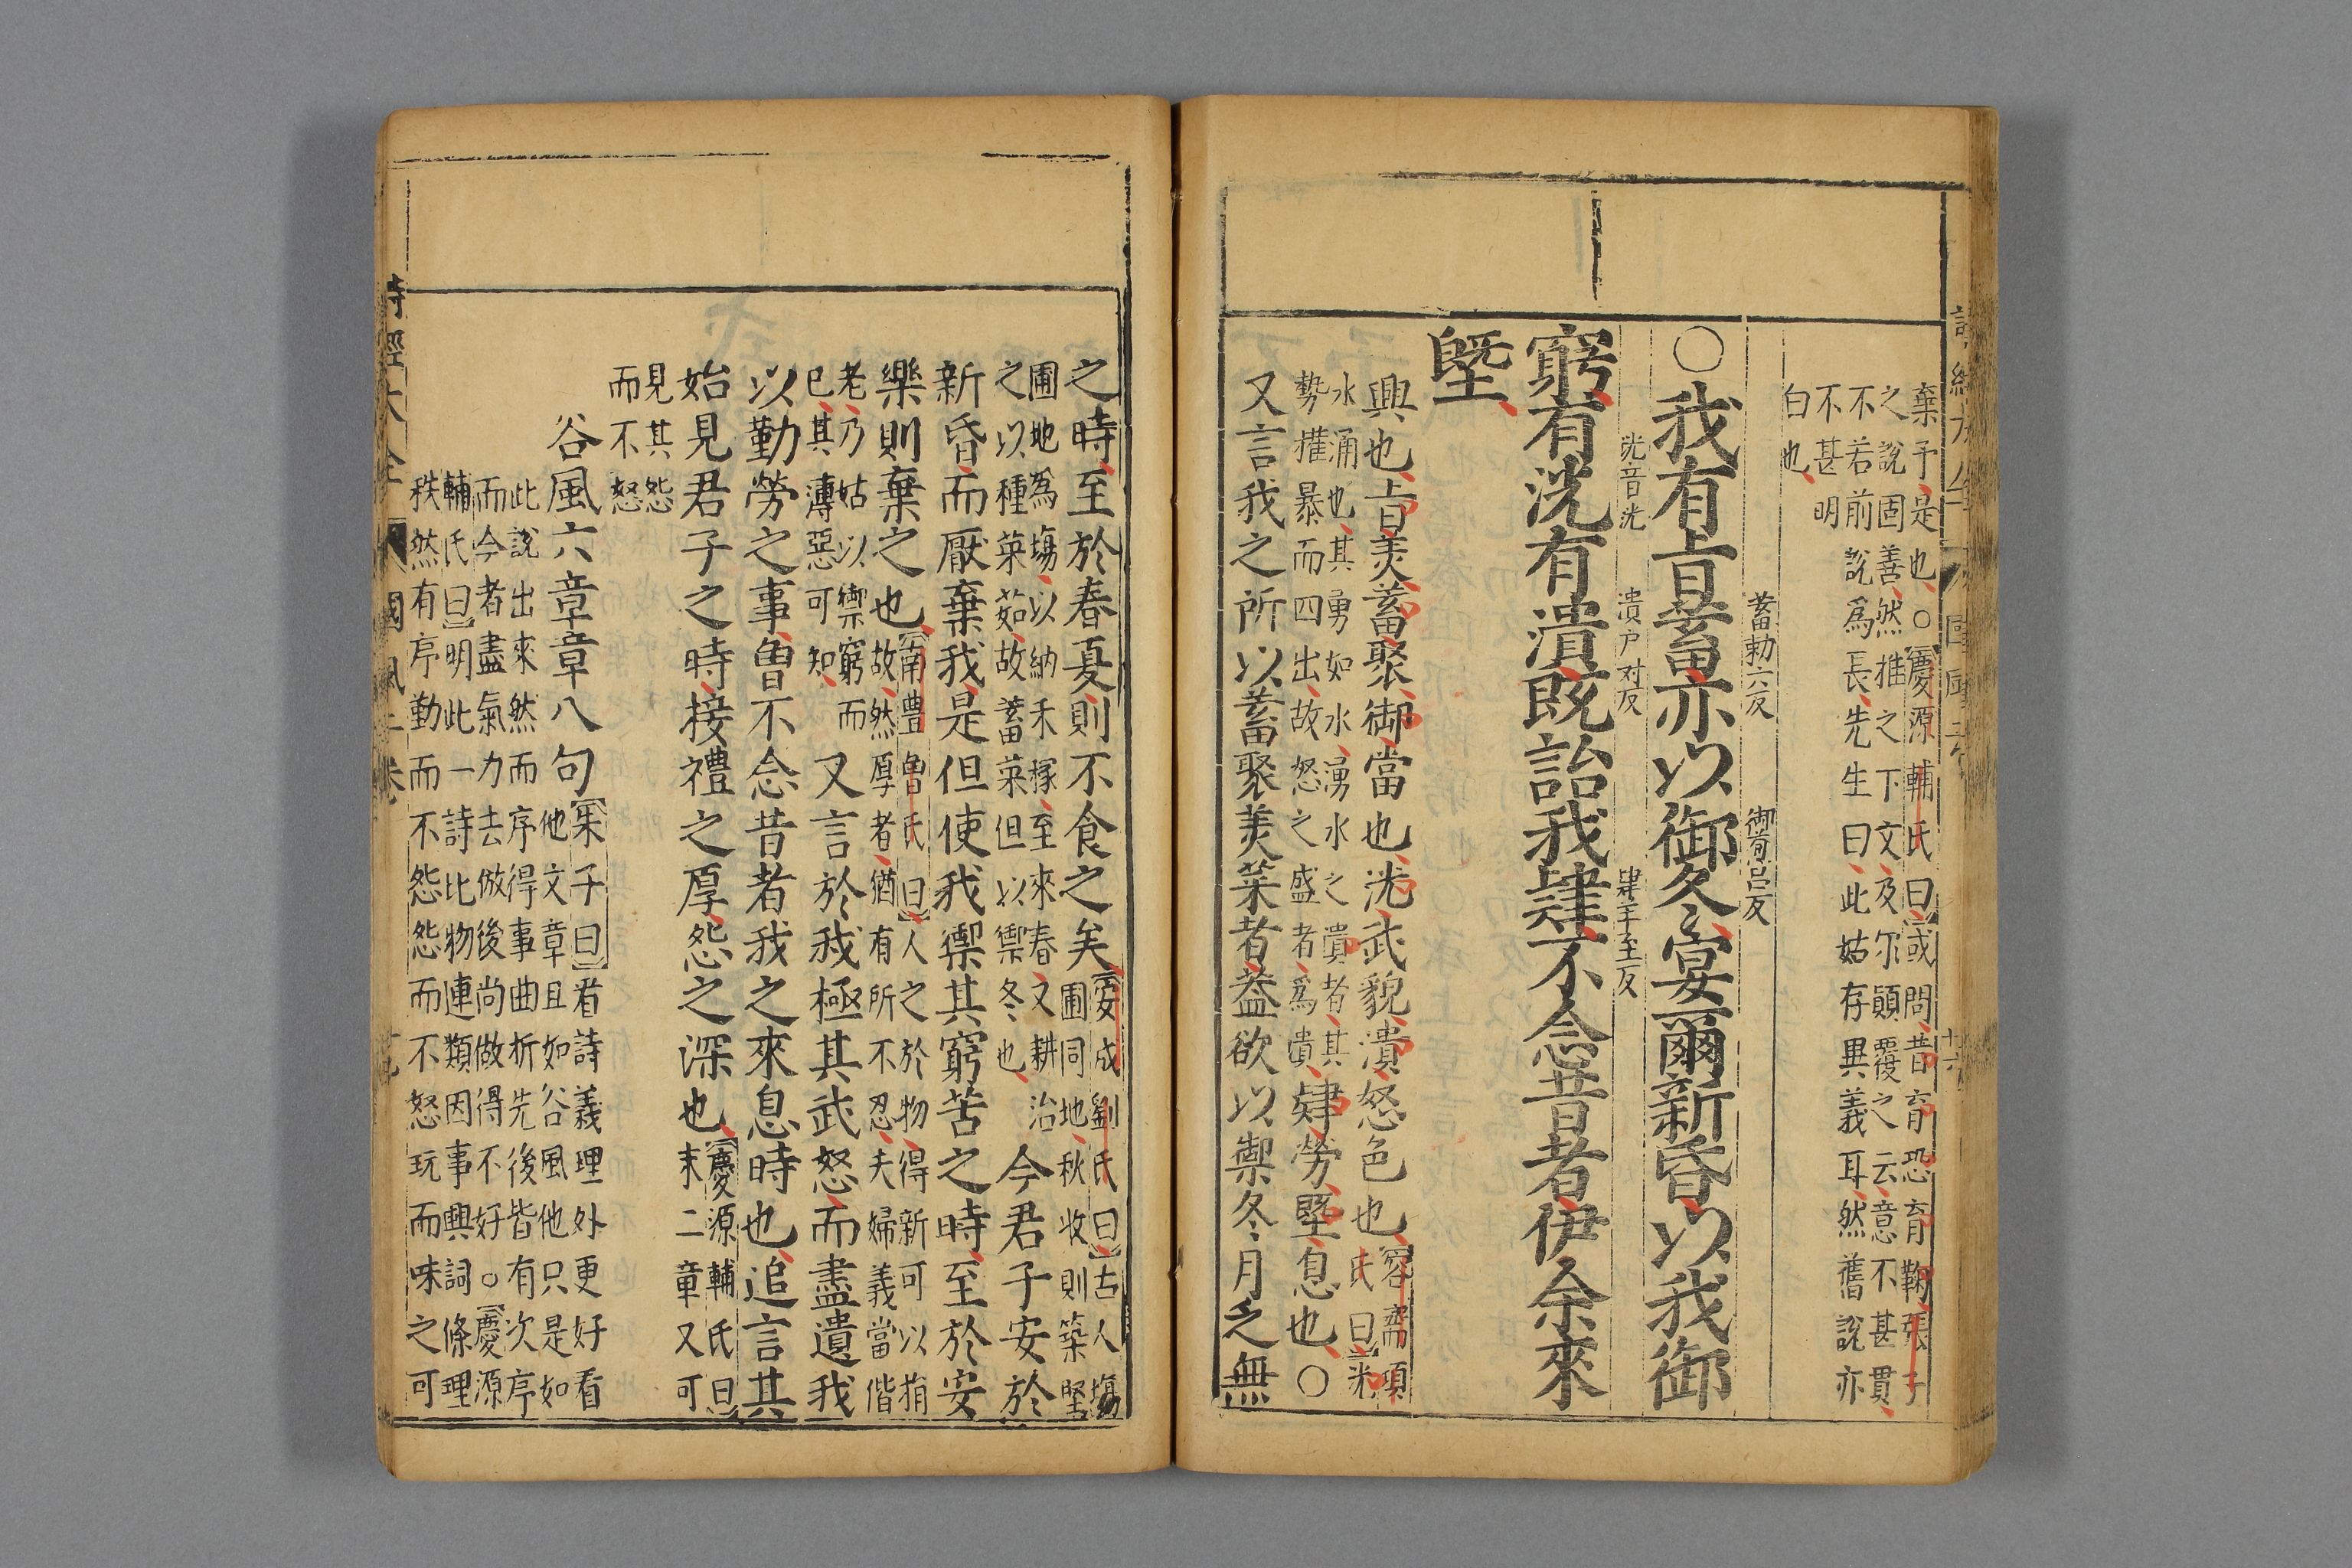 棄予是也○慶源輔氏曰或問昔育恐育鞠張子
之說固善然推之下文及爾顚覆之云意不甚貫
不若前說爲長先生曰此姑存異義耳然舊說亦
不甚明
白也
蓄勅六反 御魚呂反
○我有旨蓄亦以御冬宴爾新昏以我御
洸音光 潰户对反 肄羊至反
窮有洸有潰旣詒我肄不念昔者伊余來
墍
興也旨美蓄聚御當也洸武貌潰怒色也
容齋項
氏曰洸
水涌也其勇如水湧水之潰者其
勢摧暴而四出故怒之盛者爲潰
肄勞墍息也○
又言我之所以蓄聚美菜者蓋欲以禦冬月乏無
之時至於春夏則不食之矣
安成劉氏曰古人塲
圃同地秋收則築堅
圃地爲塲以納禾稼至來春又耕治
之以種菜茹故蓄菜但以禦冬也
今君子安於
新昏而厭棄我是但使我禦其窮苦之時至於安
樂則棄之也
南豐曾氏曰人之於物得新可以捐
故然厚者猶有所不忍夫婦義當偕
老乃姑以禦窮而
已其薄惡可知
又言於我極其武怒而盡遺我
以勤勞之事曾不念昔者我之來息時也追言其
始見君子之時接禮之厚怨之深也
慶源輔氏曰
末二章又可
見其怨
而不怒
谷風六章章八句
朱子曰看詩義理外更好看
他文章且如谷風他只是如
此說出來然而序得事曲折先後皆有次序
而今者盡氣力去倣後尚做得不好○慶源
輔氏曰明此一詩比物連類因事興詞條理
秩然有序勤而不怨怨而不怒玩而味之可
詩經大全 國風二卷